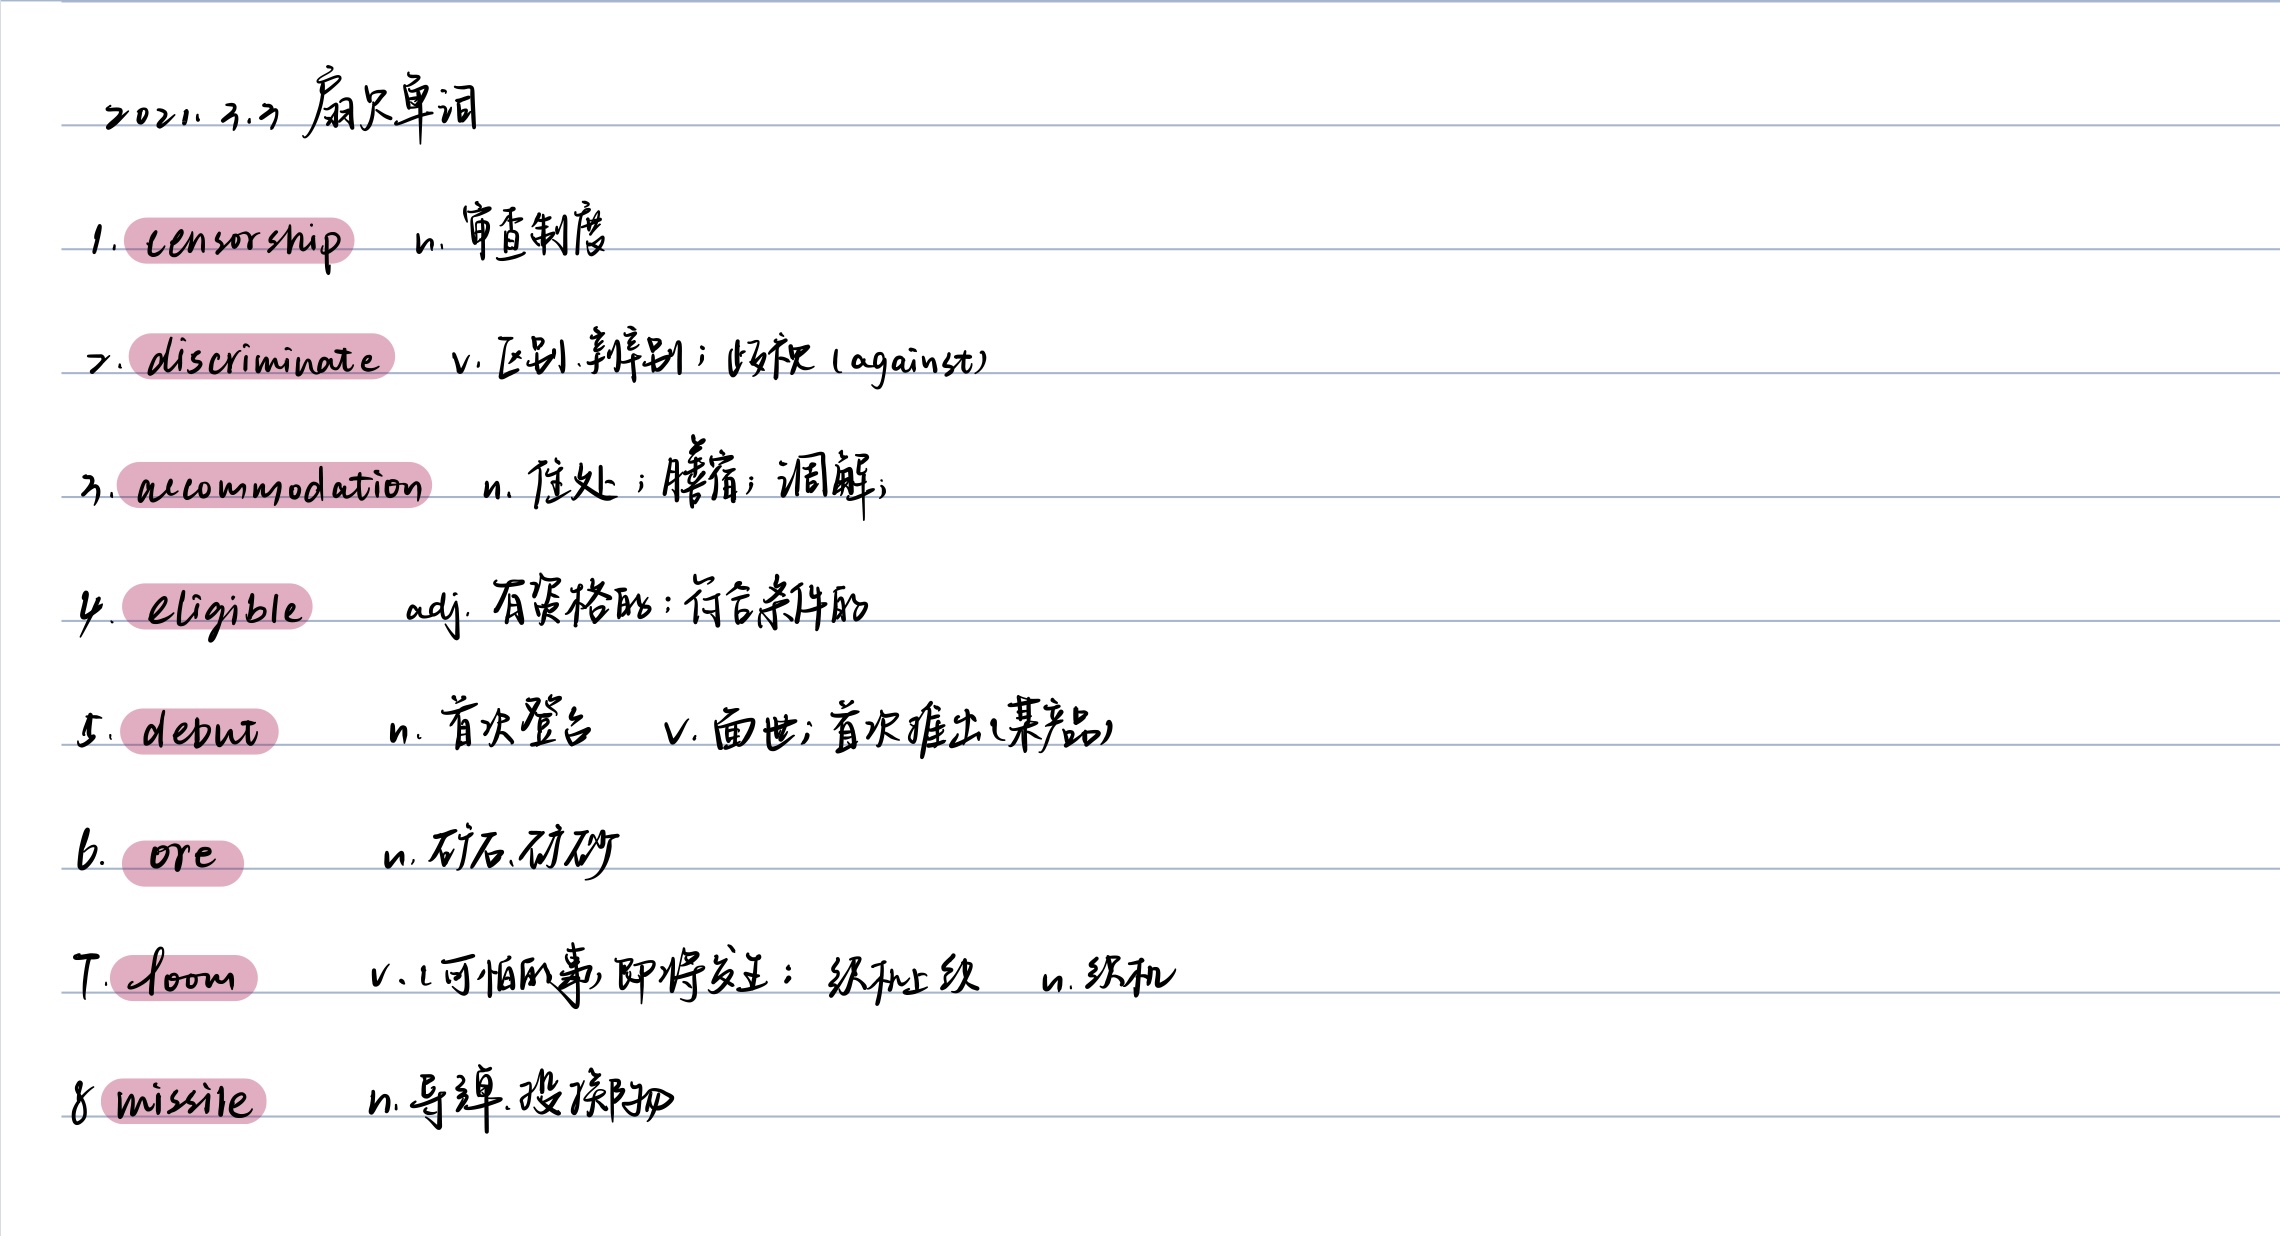 2021.3.3 扇贝单词
1. censorship n. 审查制度
2. discriminate v. 区别.辨别；歧视 (against)
3. accommodation n. 住处；膳宿；调解；
4. eligible adj. 有资格的；符合条件的
5. debut n. 首次登台 v. 面世；首次推出(某产品)
6. ore n. 矿石、矿砂
7. loom v. (可怕的事)即将发生；织机上织 n. 织机
8 missile n. 导弹.投掷物